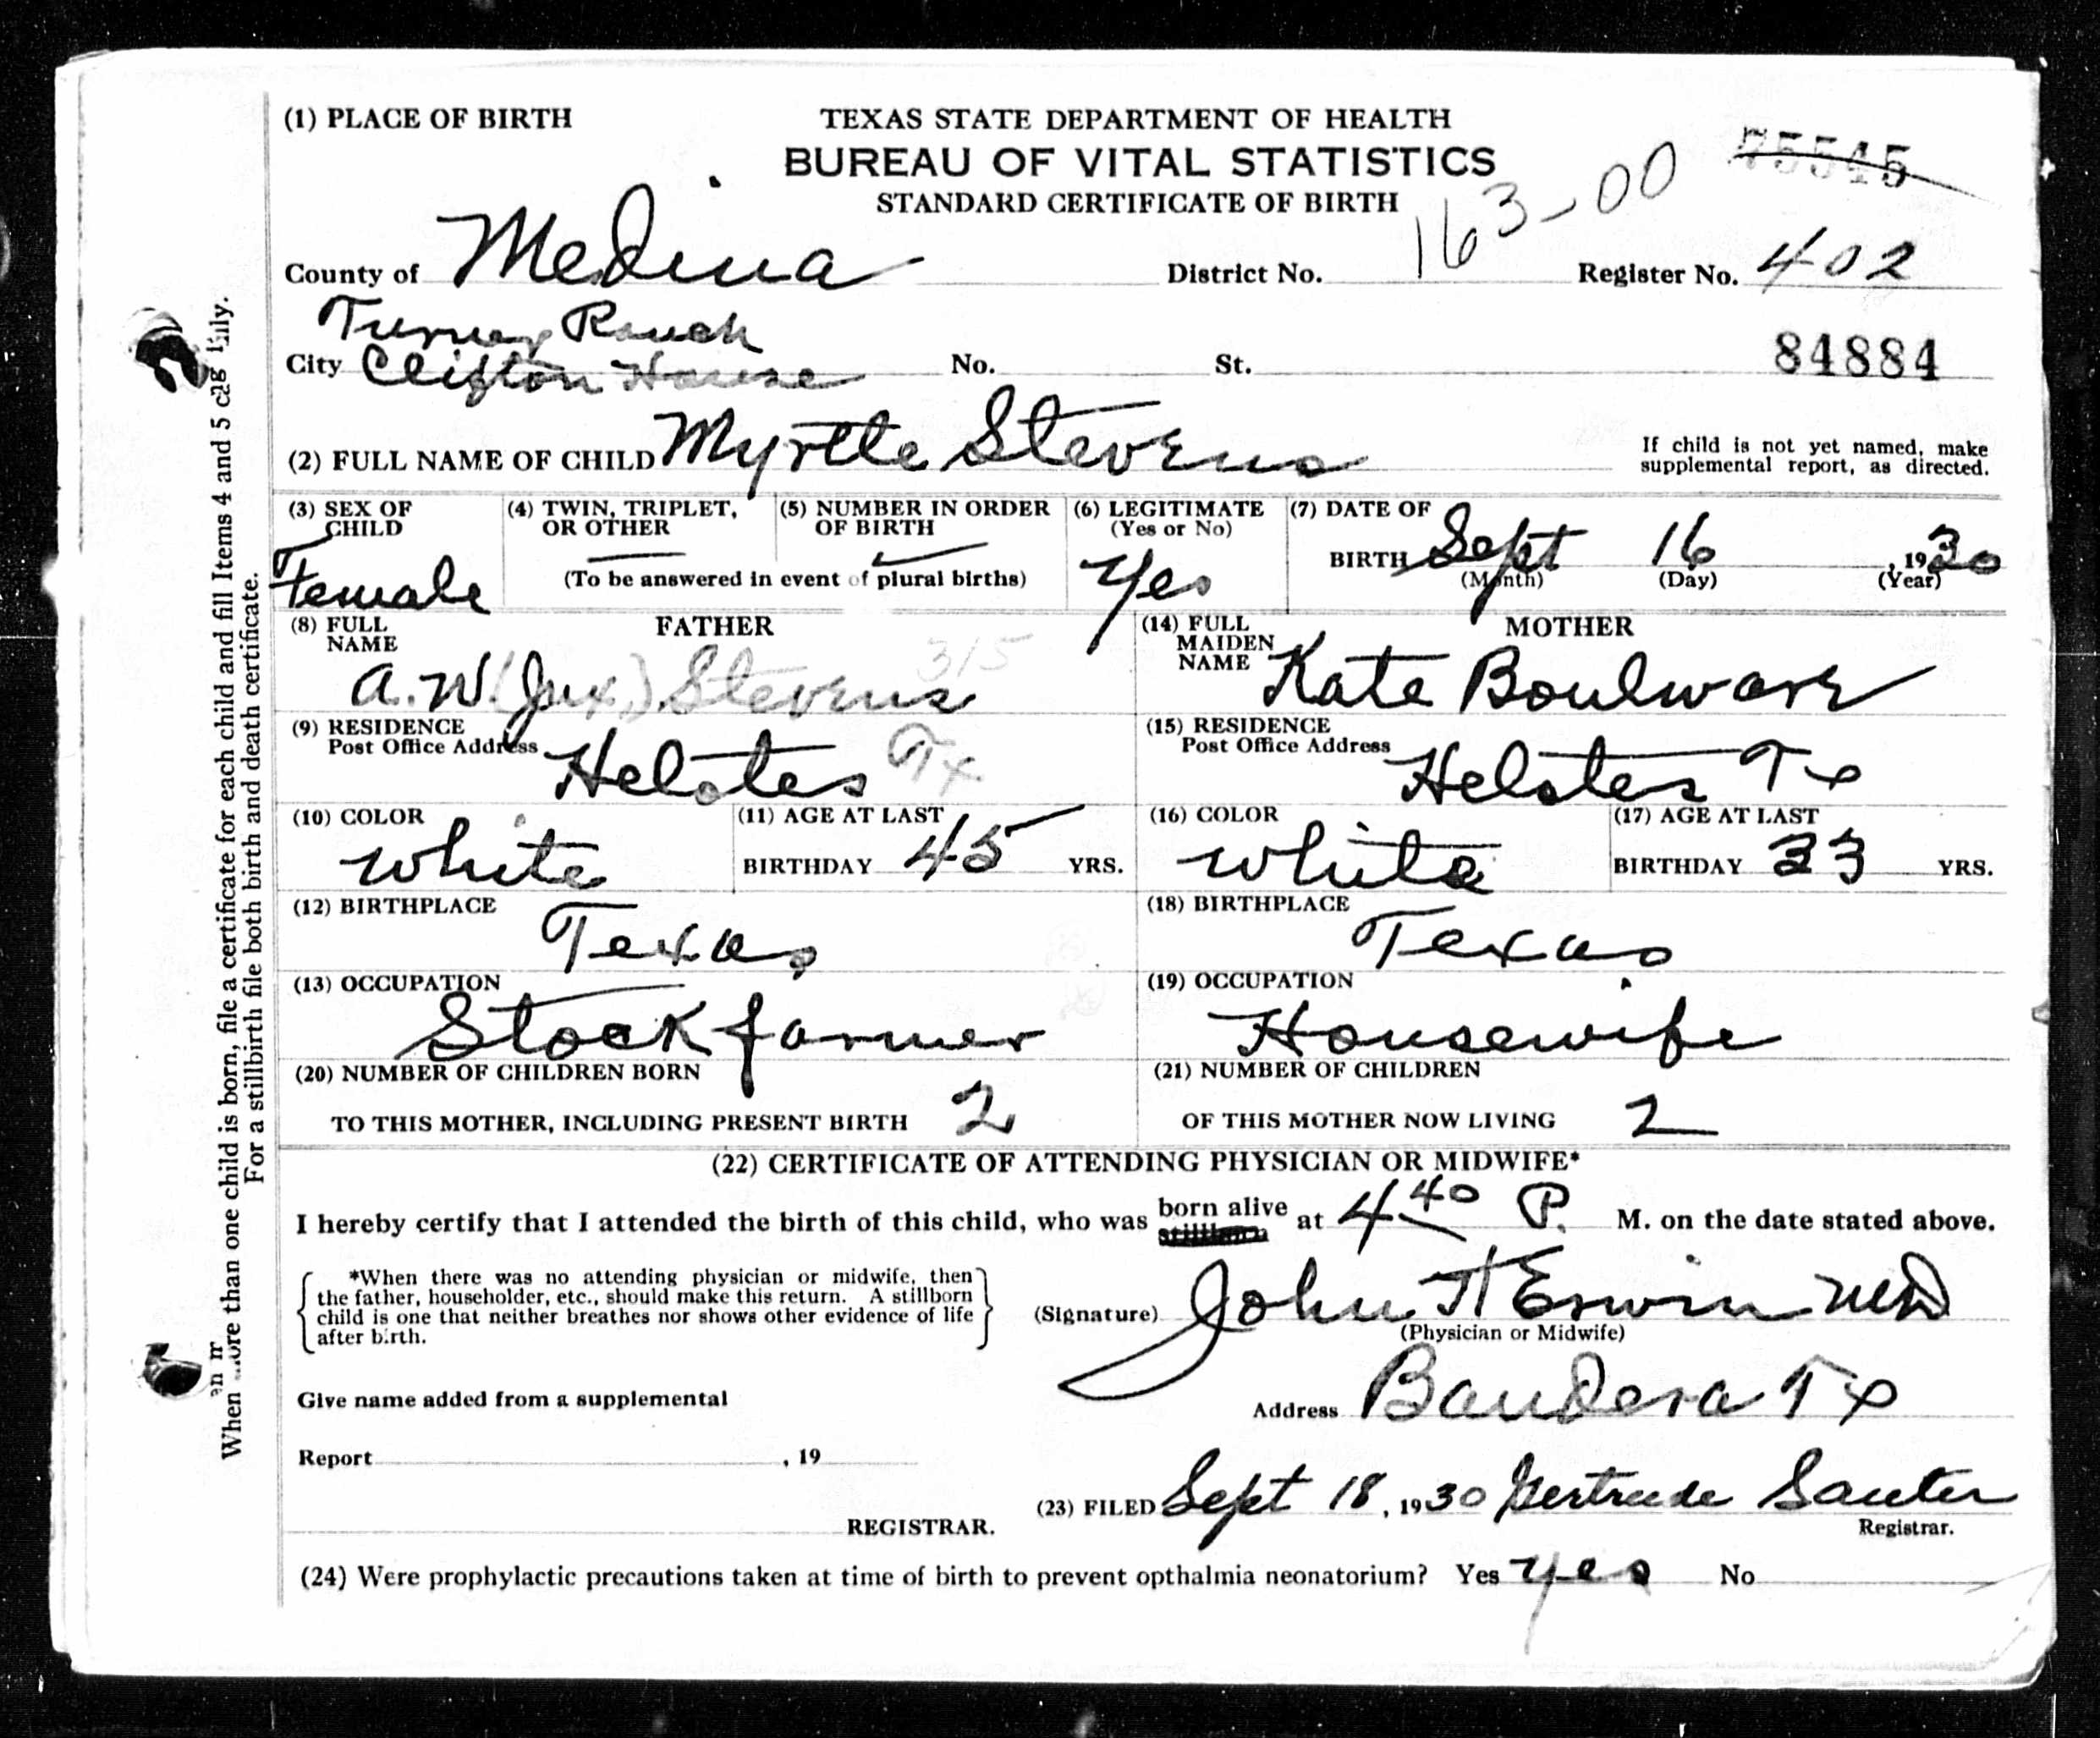 (1) PLACE OF BIRTH
TEXAS STATE DEPARTMENT OF HEALTH
BUREAU OF VITAL STATISTICS
STANDARD CERTIFICATE OF BIRTH
75545
County of Medina District No. 163-00 Register No. 402
Turner Ranch
City Clifton House No. St. 84884
(2) FULL NAME OF CHILD Myrtle Stevens
If child is not yet named, make
supplemental report, as directed.
(3) SEX OF CHILD Female
(4) TWIN, TRIPLET, OR OTHER
(5) NUMBER IN ORDER OF BIRTH
(To be answered in event of plural births)
(6) LEGITIMATE (Yes or No) Yes
(7) DATE OF BIRTH Sept 16, 1930
(Month) (Day) (Year)
(8) FULL NAME FATHER
315
A. W. (Jux.) Stevens
(14) FULL MAIDEN NAME MOTHER
Kate Boulware
(9) RESIDENCE
Post Office Address Helotes Tx
(15) RESIDENCE
Post Office Address Helotes Tx
(10) COLOR White
(11) AGE AT LAST BIRTHDAY 45 YRS.
(16) COLOR White
(17) AGE AT LAST BIRTHDAY 33 YRS.
(12) BIRTHPLACE Texas
(18) BIRTHPLACE Texas
(13) OCCUPATION Stock farmer
(19) OCCUPATION Housewife
(20) NUMBER OF CHILDREN BORN
TO THIS MOTHER, INCLUDING PRESENT BIRTH 2
(21) NUMBER OF CHILDREN
OF THIS MOTHER NOW LIVING 2
(22) CERTIFICATE OF ATTENDING PHYSICIAN OR MIDWIFE*
I hereby certify that I attended the birth of this child, who was born alive at 4 40 P. M. on the date stated above.
*When there was no attending physician or midwife, then
the father, householder, etc., should make this return. A stillborn
child is one that neither breathes nor shows other evidence of life
after birth.
(Signature) John H Erwin MD
(Physician or Midwife)
Address Bandera Tx
Give name added from a supplemental
Report , 19
REGISTRAR.
(23) FILED Sept 18, 1930 Gertrude Sauter
Registrar.
(24) Were prophylactic precautions taken at time of birth to prevent opthalmia neonatorium? Yes Yes No
When more than one child is born, file a certificate for each child and fill Items 4 and 5
For a stillbirth file both birth and death certificate.